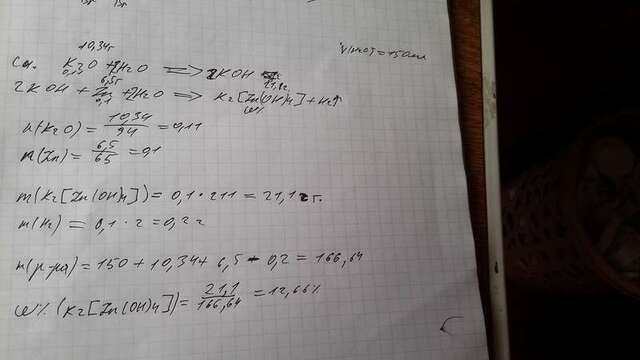 10,34г
V(H2O) = 150мл
K2O + H2O ⇒ 2KOH
0,11
6,5г
21,1г
2KOH + Zn + 2H2O ⇒ K2[Zn(OH)4] + H2↑
0,1
w%
n(K2O) = 10,34/94 = 0,11
n(Zn) = 6,5/65 = 0,1
m(K2[Zn(OH)4]) = 0,1·211 = 21,1 г.
m(H2) = 0,1·2 = 0,2 г
m(р-ра) = 150 + 10,34 + 6,5 - 0,2 = 166,64
w% (K2[Zn(OH)4]) = 21,1/166,64 = 12,66%